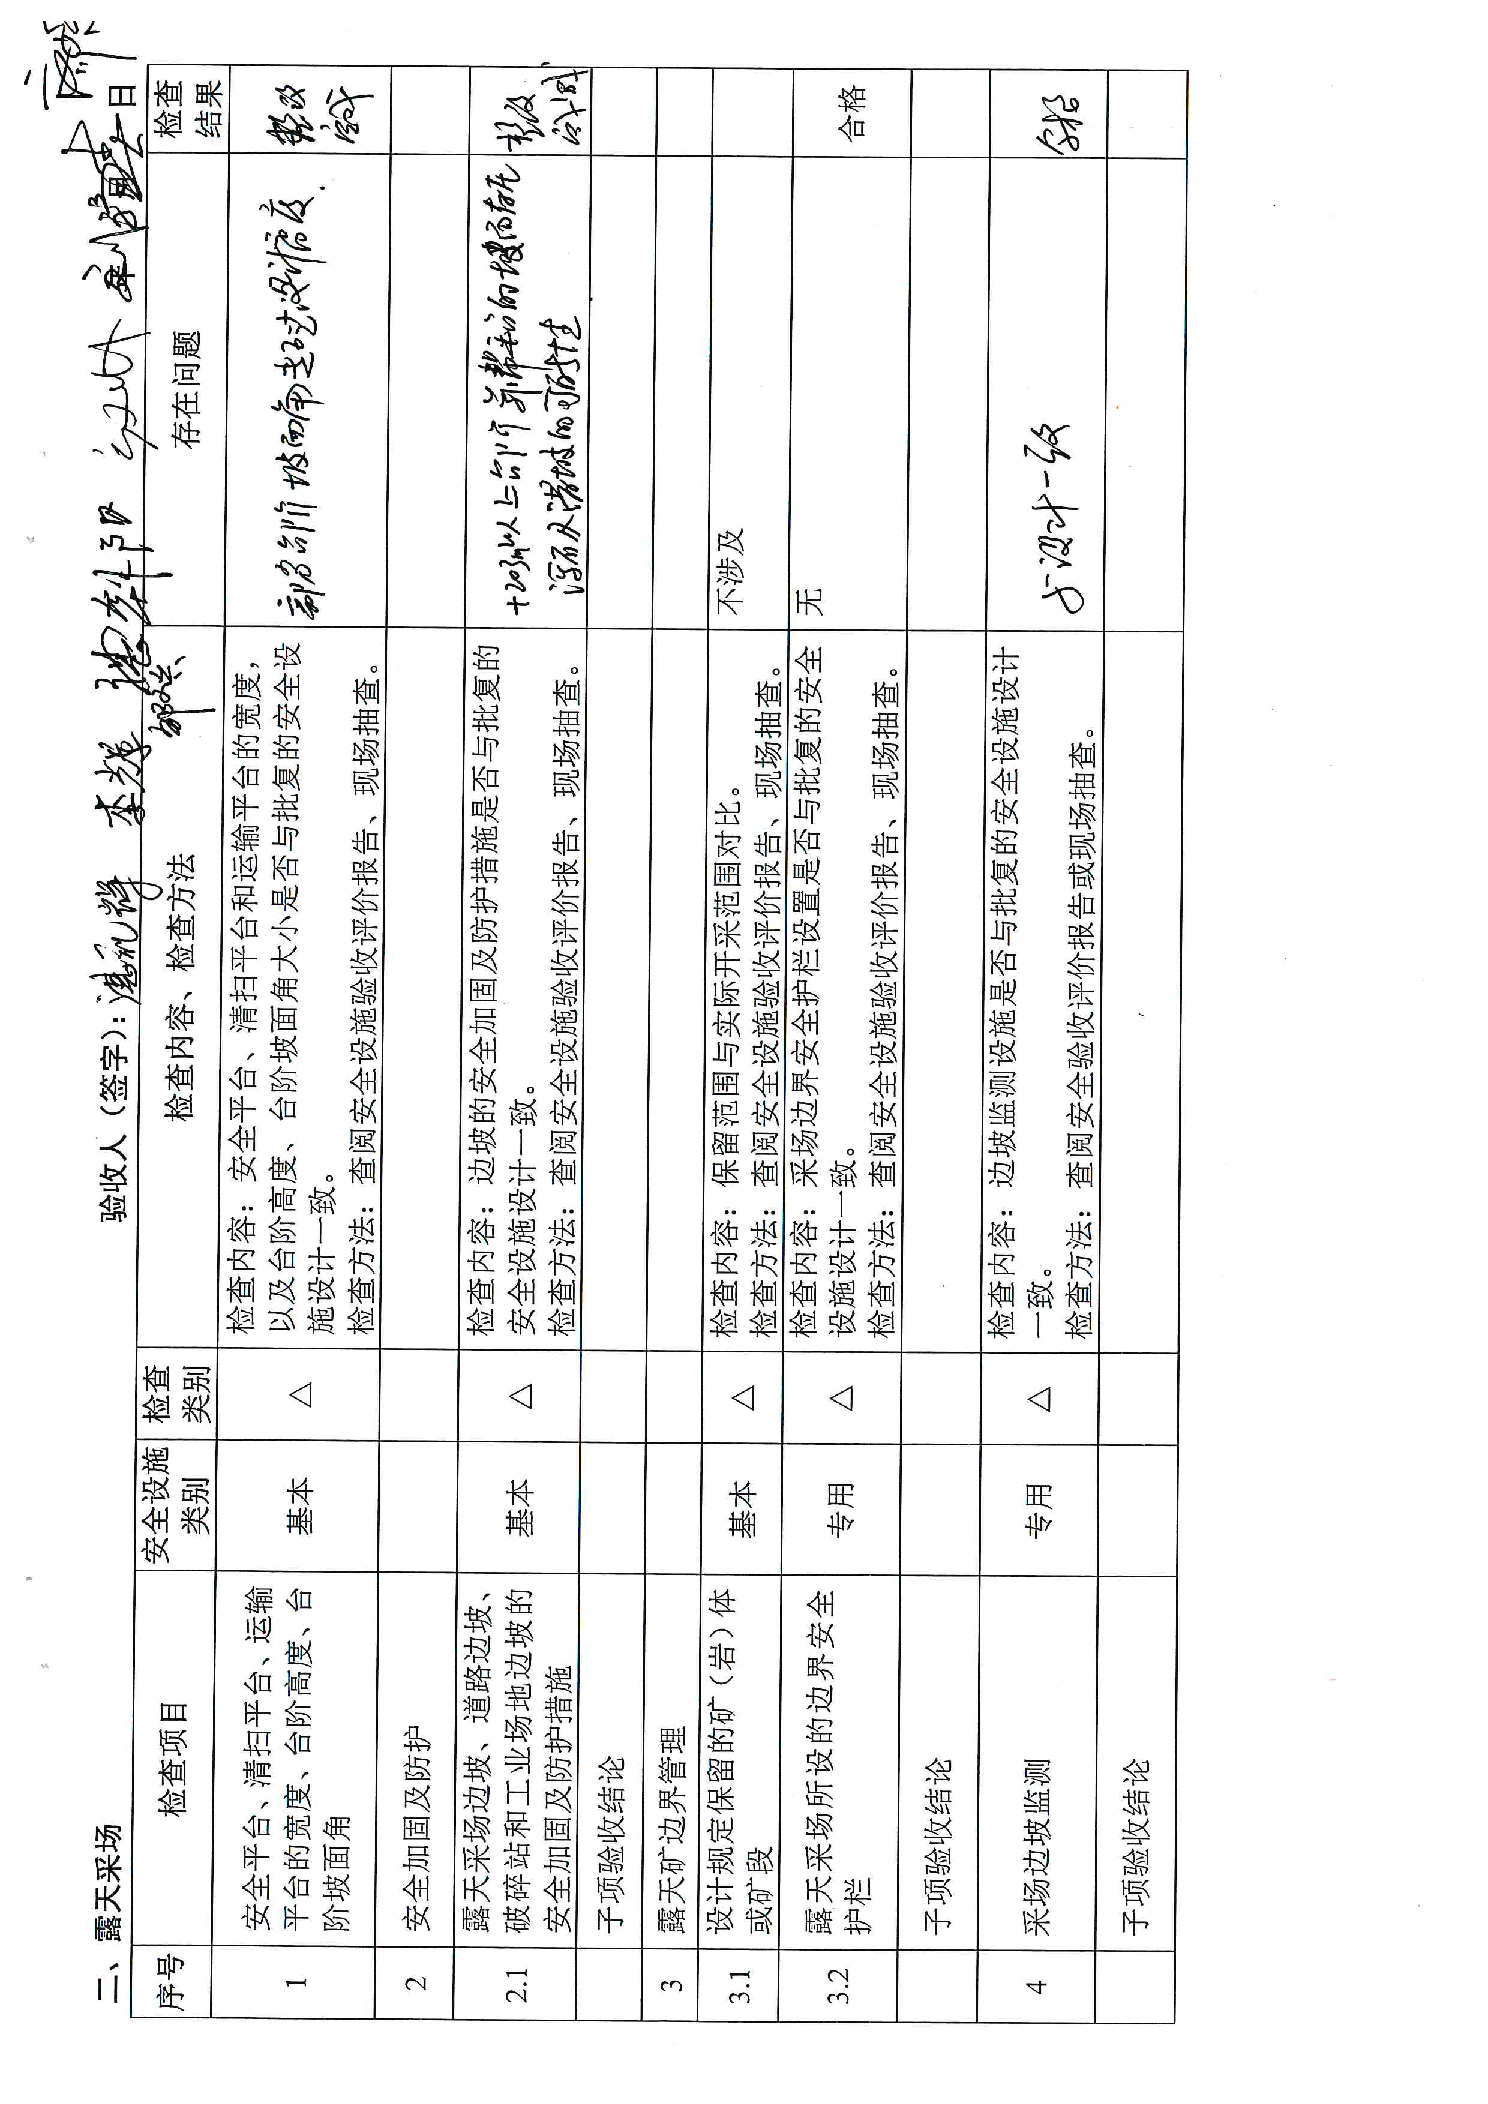 二、露天采场
验收人（签字）：
月
日
序号
检查项目
安全设施
类别
检查
类别
检查内容、检查方法
存在问题
检查
结果
1
安全平台、清扫平台、运输
平台的宽度、台阶高度、台
阶坡面角
基本
△
检查内容：安全平台、清扫平台和运输平台的宽度，
以及台阶高度、台阶坡面角大小是否与批复的安全设
施设计一致。
检查方法：查阅安全设施验收评价报告、现场抽查。
部分台阶坡面角超过设计角度.
整改
完成
2
安全加固及防护
2.1
露天采场边坡、道路边坡、
破碎站和工业场地边坡的
安全加固及防护措施
基本
△
检查内容：边坡的安全加固及防护措施是否与批复的
安全设施设计一致。
检查方法：查阅安全设施验收评价报告、现场抽查。
+203m以上台阶并帮的坡面存在
浮石及滑坡的可能性
整改
完成
子项验收结论
3
露天矿边界管理
3.1
设计规定保留的矿（岩）体
或矿段
基本
△
检查内容：保留范围与实际开采范围对比。
检查方法：查阅安全设施验收评价报告、现场抽查。
不涉及
3.2
露天采场所设的边界安全
护栏
专用
△
检查内容：采场边界安全护栏设置是否与批复的安全
设施设计一致。
检查方法：查阅安全设施验收评价报告、现场抽查。
无
合格
子项验收结论
4
采场边坡监测
专用
△
检查内容：边坡监测设施是否与批复的安全设施设计
一致。
检查方法：查阅安全验收评价报告或现场抽查。
与设计一致
合格
子项验收结论